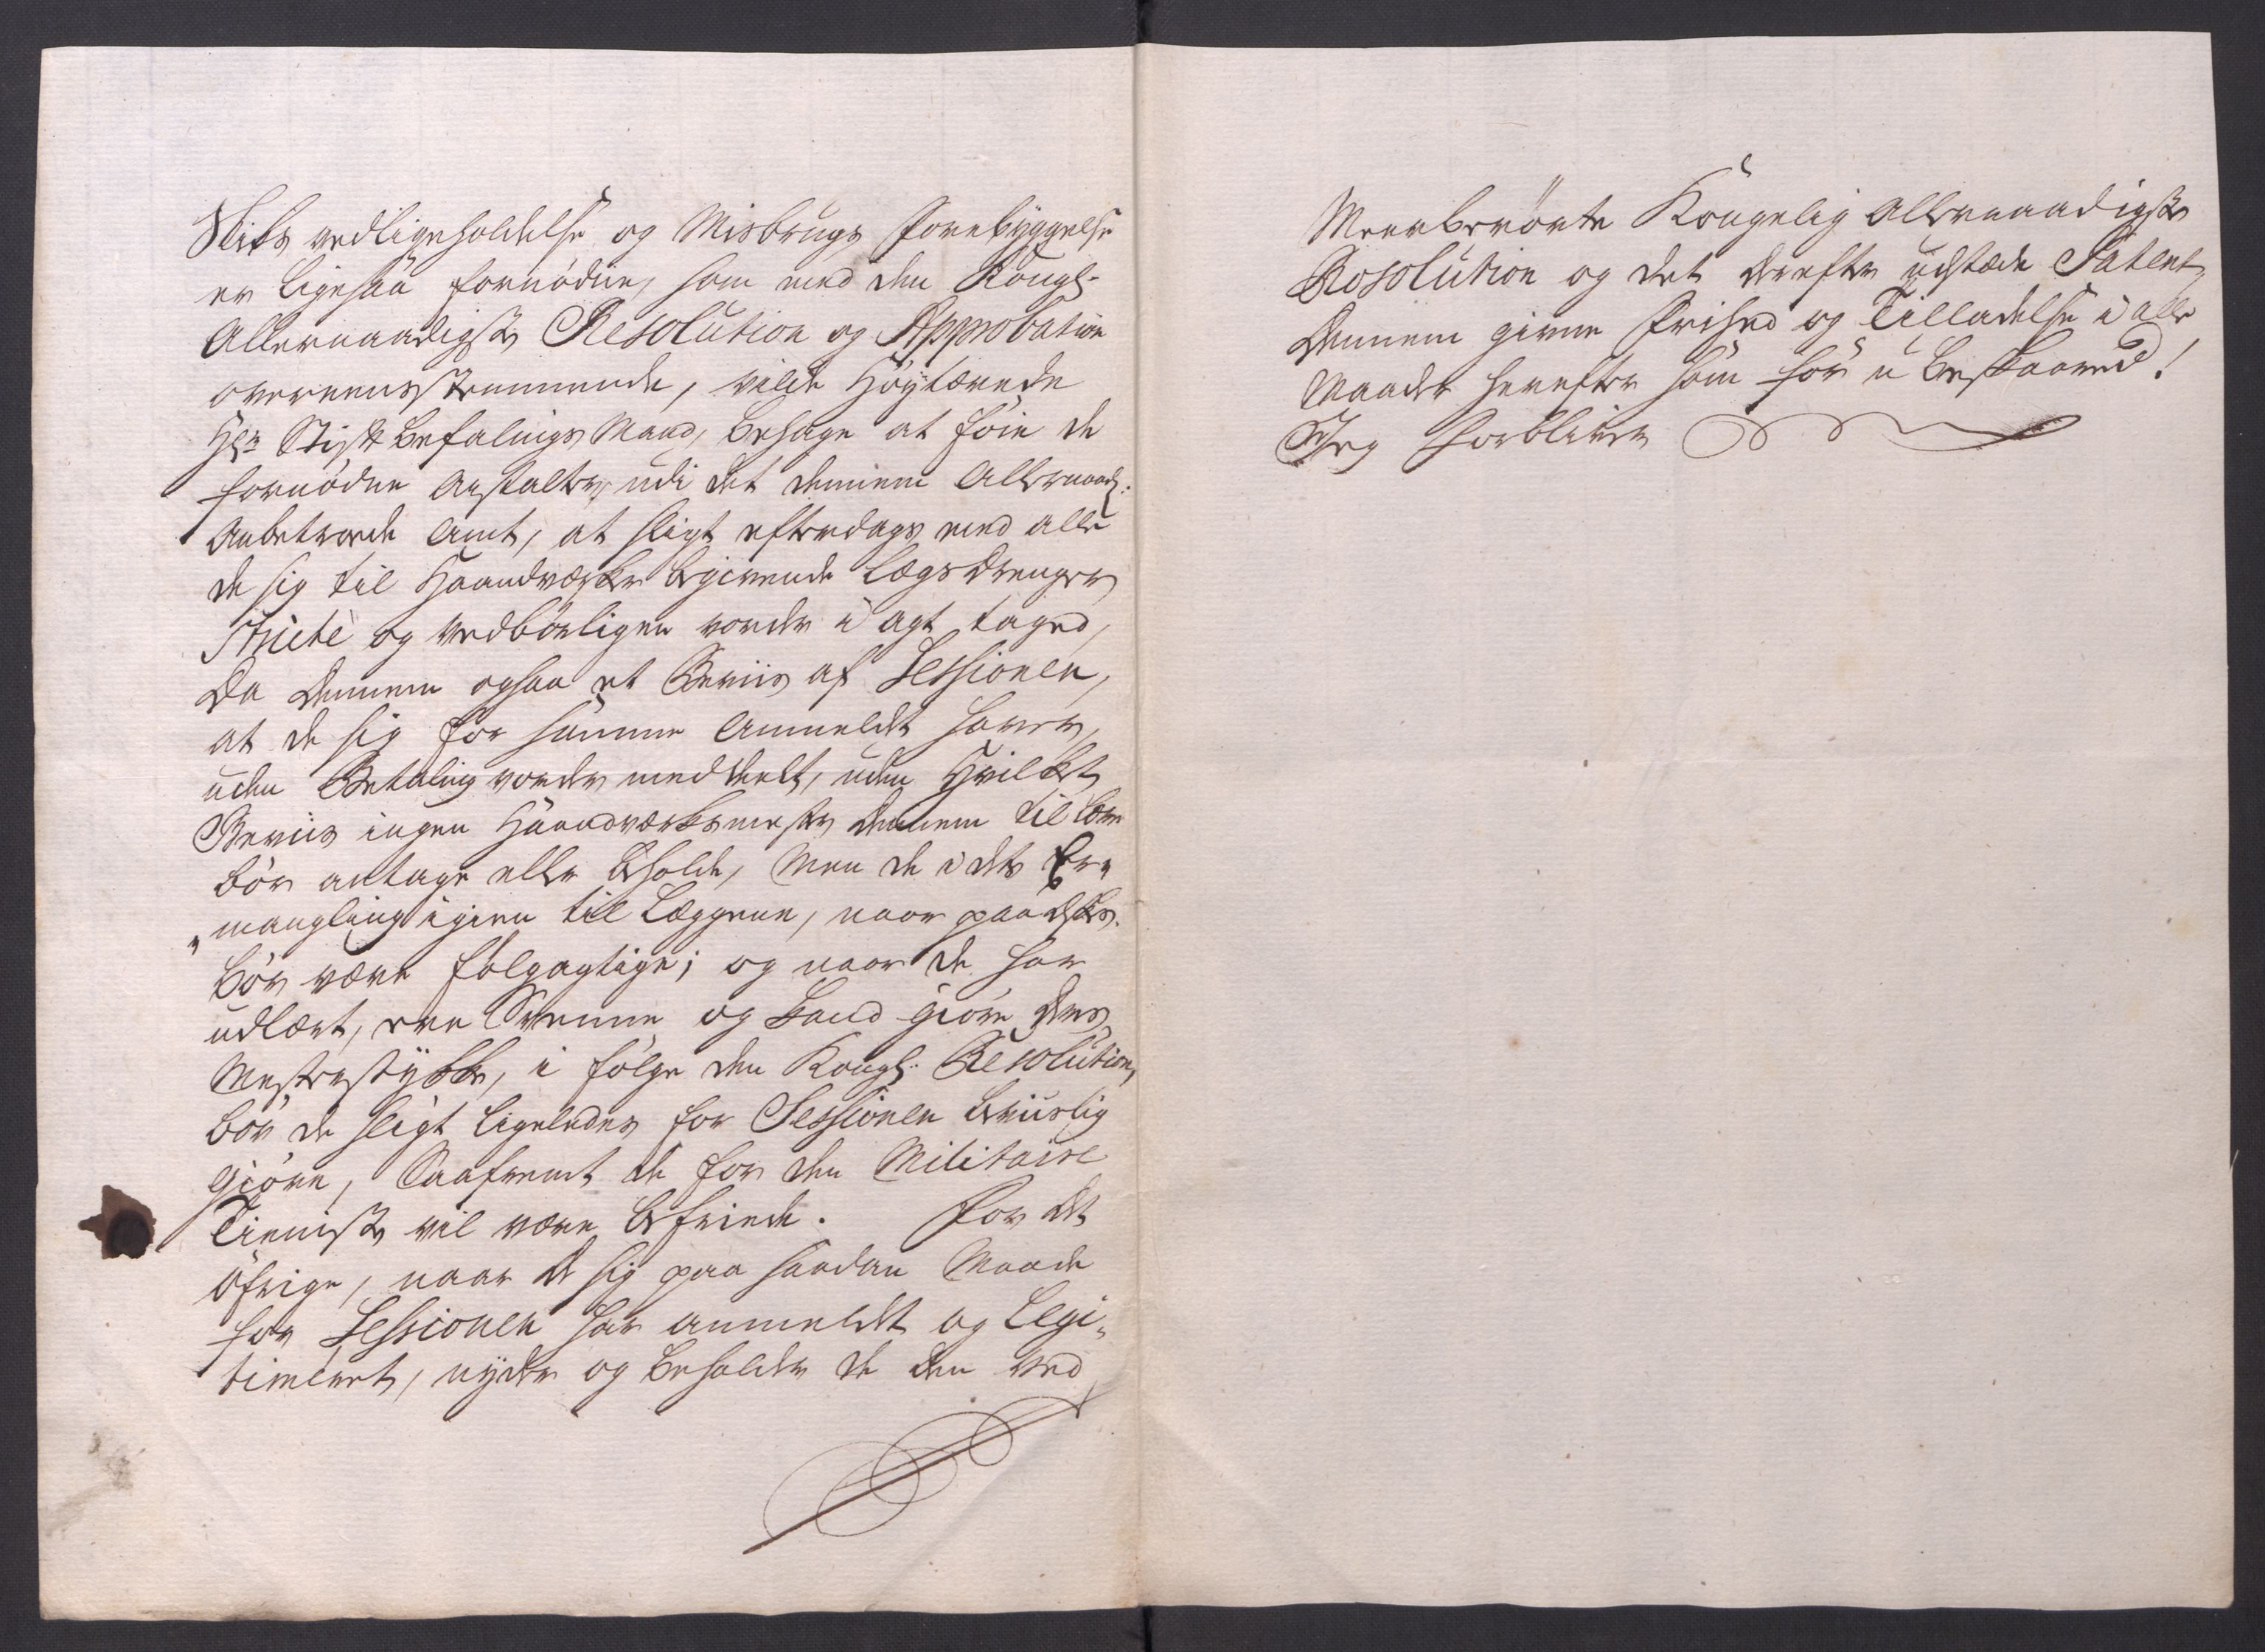 Skiks vedligeholdelse og Misbrugs Forebyggelse
er ligesaa fornøden, som med den Kongl.
Allernaadigste Resolution og Approbation
overeensstemmende, vilde Høytærede
Hr. Stiftbefalings Mand, behage at føie de
fornødne Anstalter, udi det dennem Allernaad:
Anbetroede Amt, at sligt efterdags med alle
de sig til Haandværker begivende Lægs Drenger,
Stricte og vedbørligen vorder i agt taget,
da dennem ogsaa et Beviis af Sessionen,
at de sig for samme Anmeldt haver,
uden Betaling vorder meddeelt, uden Hvilket
Beviis ingen Haandværksmester dennem til lære
bør antage eller beholde, Men de i dets
mangling igien til Læggene, naar paaeskes.
bør være følgagtige; og naar de har
udlært, ere Svenne og kand giøre deres
Mesterstykke, i følge den Kongl. Resolution,
bør de sligt ligeledes for Sessionen beviislig
giøre, Saafremt de for den Militaire
Tienniste vil være befriede. For det
øfrige, naar de sig paa saadan Maade
for Sessionen har anmeldt og Legi„
timeret, nyder og beholder de den ved
Meerberørte Kongelig Allernaadigste
Resolution og det derefter udstæde Patent,
dennem givne Frihed og Tilladelse i alle
Maader herefter som før u beskaared!
Jeg forbliver